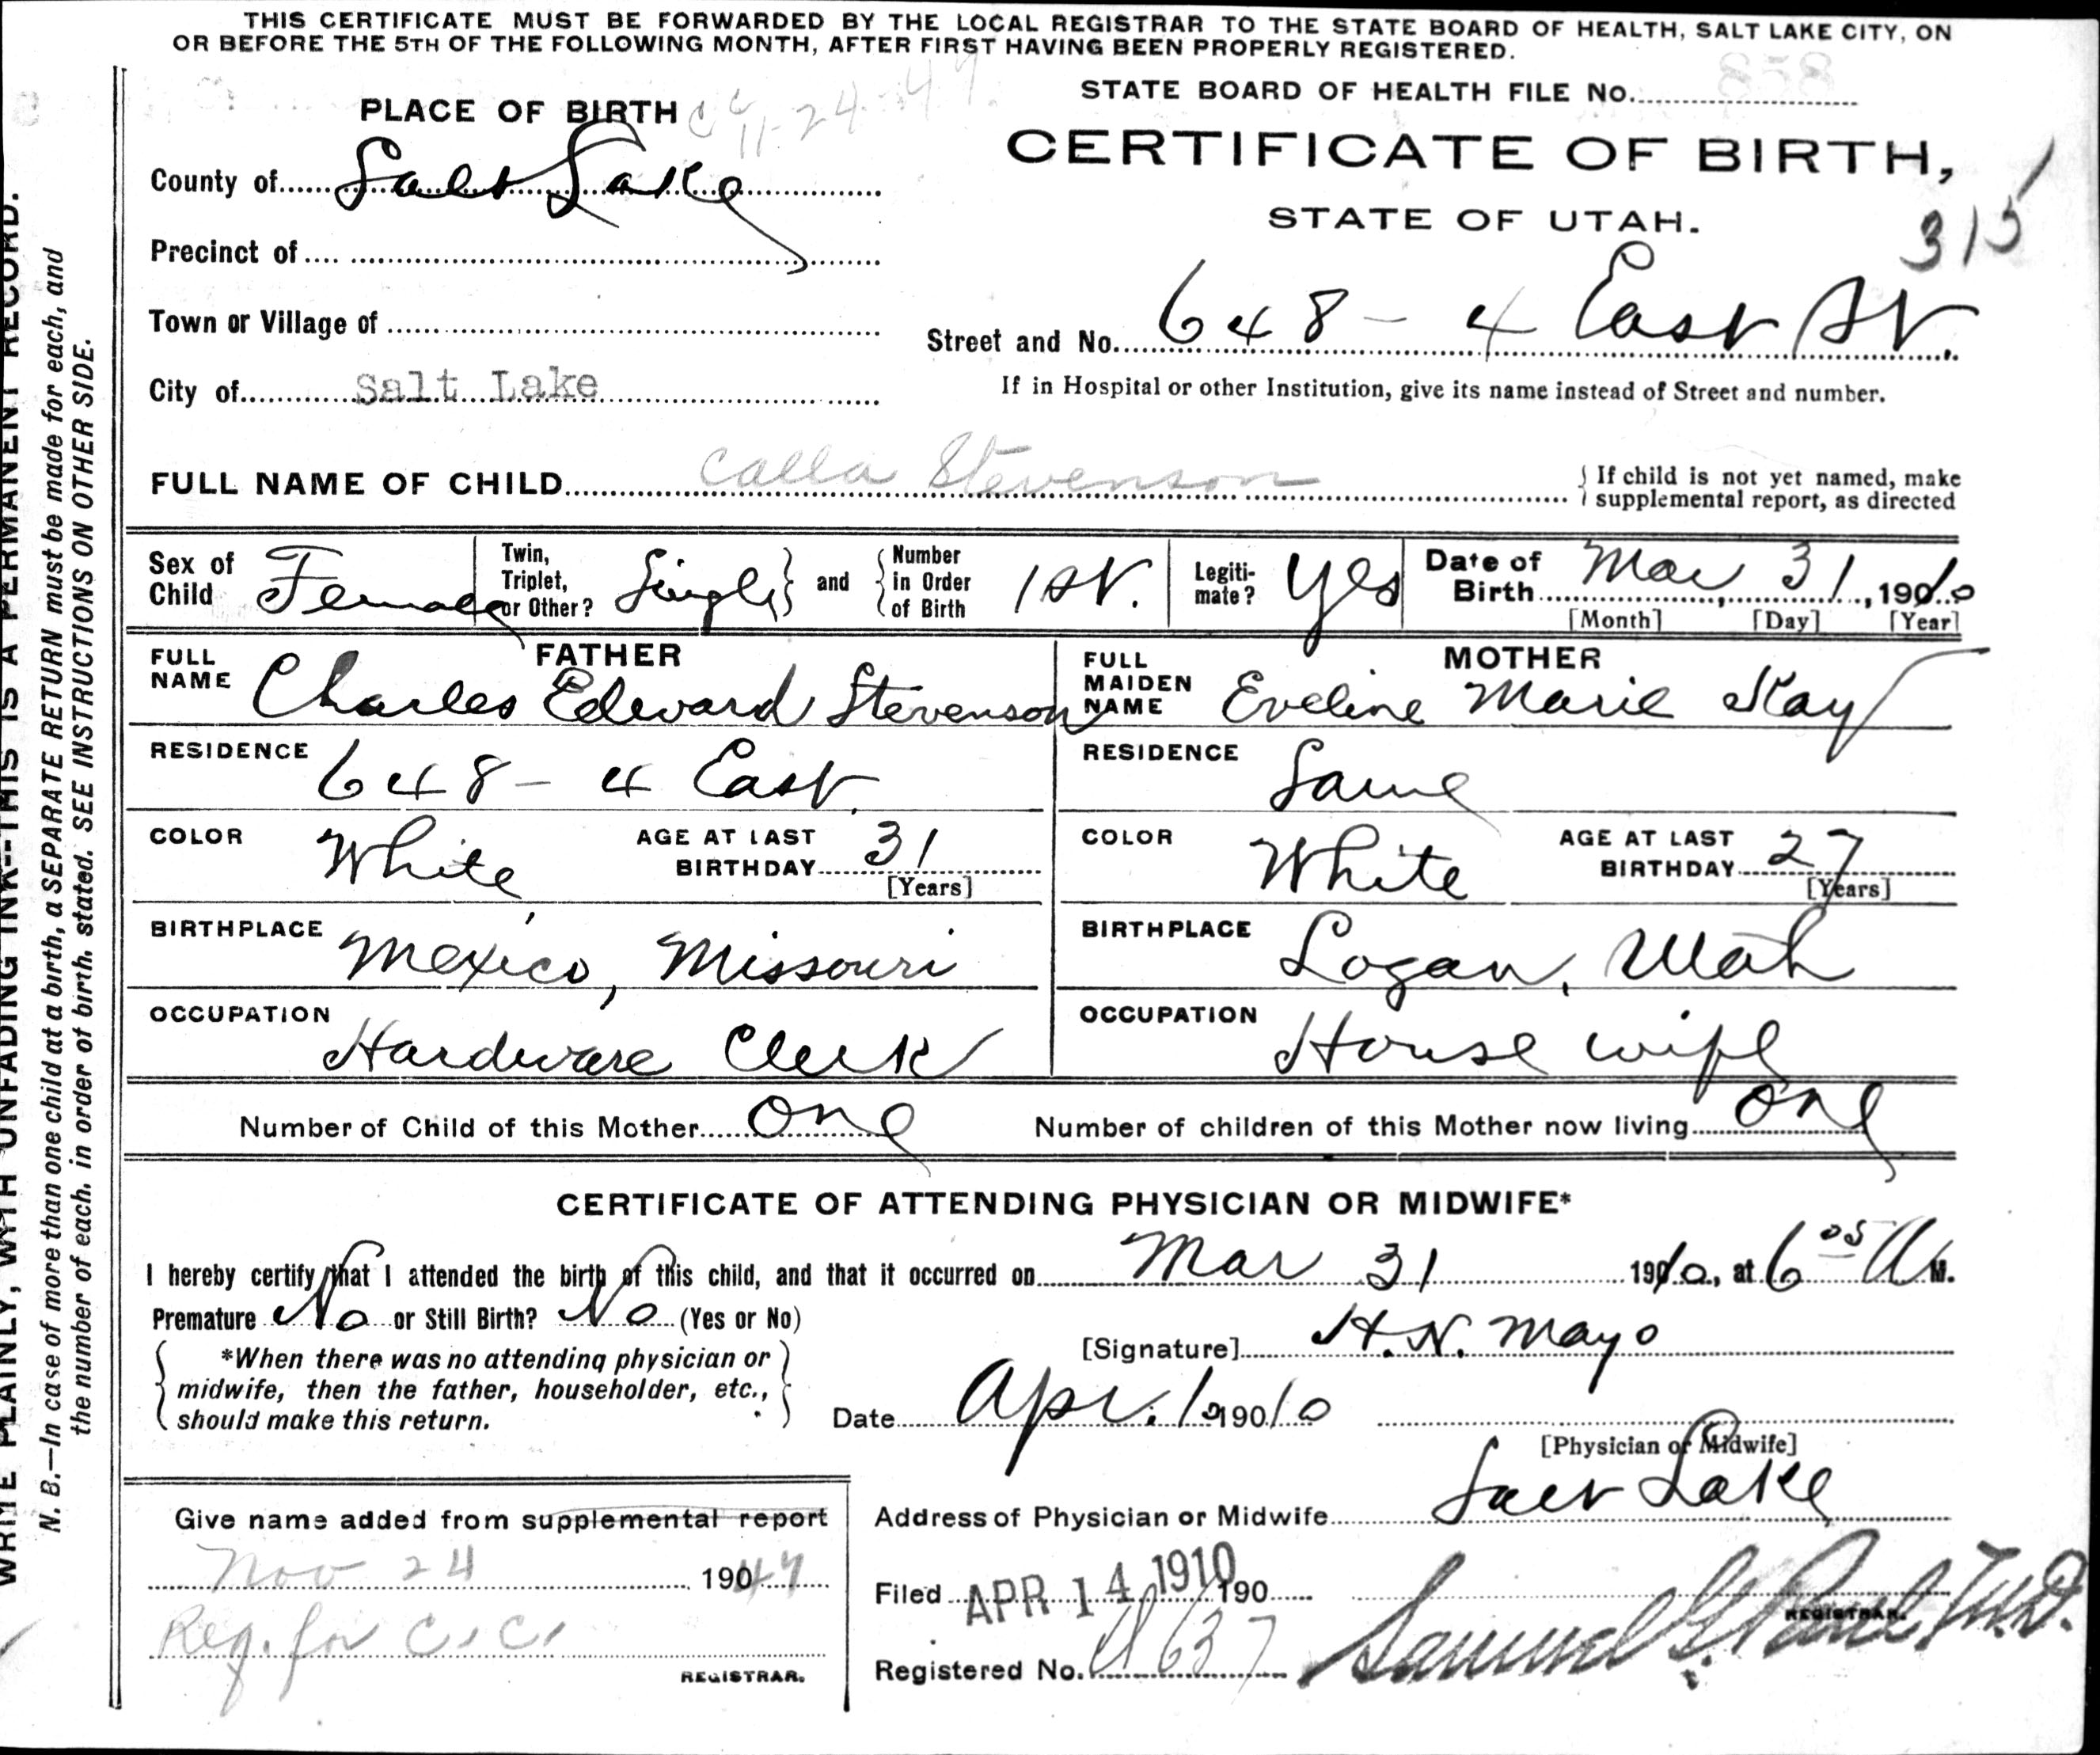 THIS CERTIFICATE MUST BE FORWARDED BY THE LOCAL REGISTRAR TO THE STATE BOARD OF HEALTH, SALT LAKE CITY, ON
OR BEFORE THE 5TH OF THE FOLLOWING MONTH, AFTER FIRST HAVING BEEN PROPERLY REGISTERED.
WRITE PLAINLY, WITH UNFADING INK--THIS IS A PERMANENT RECORD.
N. B.—In case of more than one child at a birth, a SEPARATE RETURN must be made for each, and
the number of each, in order of birth, stated. SEE INSTRUCTIONS ON OTHER SIDE.
STATE BOARD OF HEALTH FILE No. 858
PLACE OF BIRTH CC 11-24-47.
CERTIFICATE OF BIRTH,
STATE OF UTAH.
315
County of Salt Lake
Precinct of
Town or Village of
Street and No. 648 - 4 East St.
City of Salt Lake
If in Hospital or other Institution, give its name instead of Street and number.
FULL NAME OF CHILD Calla Stevenson
If child is not yet named, make
supplemental report, as directed
Sex of Child Female
Twin, Triplet, or Other? Single and Number in Order of Birth 1st.
Legitimate? Yes
Date of Birth Mar 31, 1910
[Month] [Day] [Year]
FATHER
FULL NAME Charles Edward Stevenson
RESIDENCE 648 - 4 East
COLOR White AGE AT LAST BIRTHDAY 31
[Years]
BIRTHPLACE Mexico, Missouri
OCCUPATION Hardware Clerk
MOTHER
FULL MAIDEN NAME Eveline Marie Kay
RESIDENCE Same
COLOR White AGE AT LAST BIRTHDAY 27
[Years]
BIRTHPLACE Logan, Utah
OCCUPATION House wife
Number of Child of this Mother One Number of children of this Mother now living One
CERTIFICATE OF ATTENDING PHYSICIAN OR MIDWIFE*
I hereby certify that I attended the birth of this child, and that it occurred on Mar 31 1910, at 6 05 A M.
Premature No or Still Birth? No (Yes or No)
[Signature] H. N. Mayo
*When there was no attending physician or
midwife, then the father, householder, etc.,
should make this return.
Date Apr. 1 1910
[Physician or Midwife]
Address of Physician or Midwife Salt Lake
Give name added from supplemental report
Nov 24 1947
Req. for C.C.
REGISTRAR.
Filed APR 14 1910 190
Samuel G. Paul M.D.
REGISTRAR.
Registered No. 637